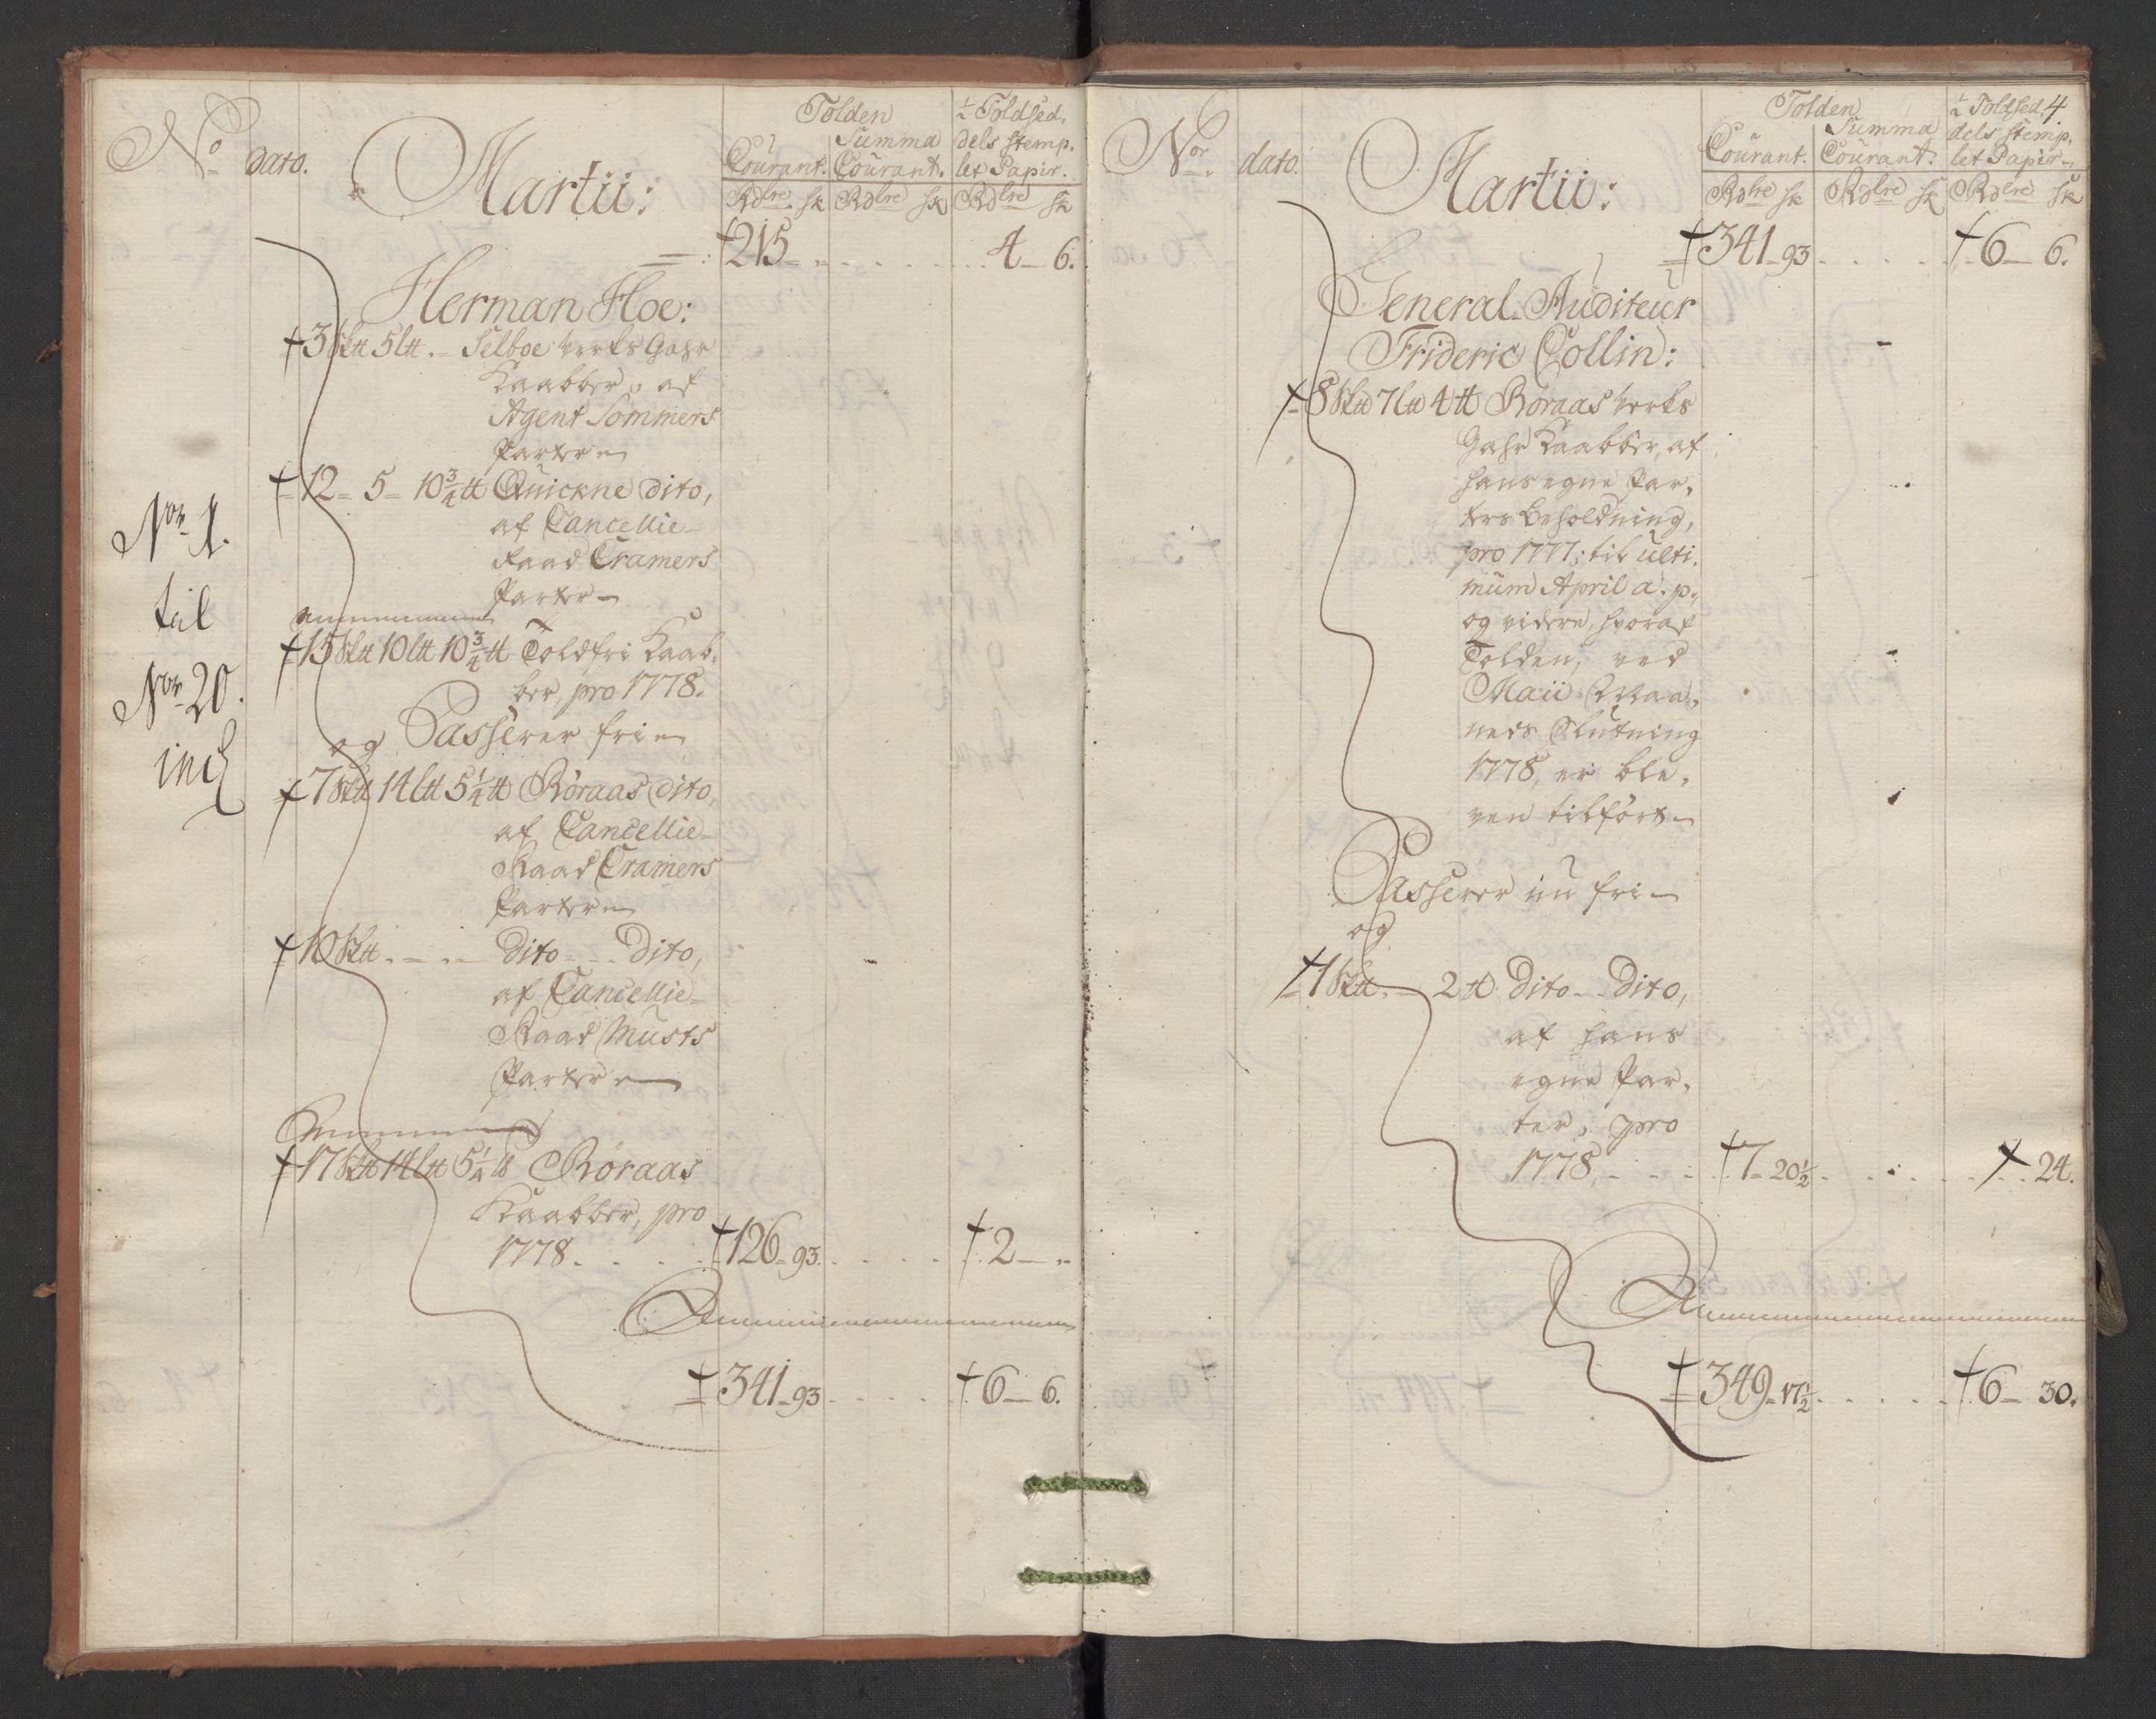 No dato. Martii:
Tolden
Courant. Summa Courant.
½ Toldsed,
dels stemp,
let Papir.
Rdlre sk Rdlre sk Rdlre sk
215 4 6.
Herman Hoe:
3 Sktt 5 Ltt. Selboe Verks Gahr
Kaabber, af
Agent Sommers
Parter
12 - 5 - 10¾ tt Quickne dito,
af Cancellie
Raad Cramers
Parter
15 Sktt 10 Ltt 10¾ tt Toldfri Kaab,
ber, pro 1778.
Passerer fri
og
7 Sktt 14 Ltt 5¼ tt Röraas dito,
af Cancellie
Raad Cramers
Parter
10 Sktt. Dito Dito,
af Cancellie
Raad Musts
Parter
17 Sktt 14 Ltt 5¼ tt Röraas
Kaabber, pro
1778. 126 - 93. 2
341 - 93 6 - 6.
Nor 1.
til
Nor 20.
incl
Nor. dato. Martii:
Tolden
Courant. Summa Courant.
½ Toldsed, 4.
dels stemp,
let Papir
Rdlre sk Rdlre sk Rdlre sk
341 - 93 6 - 6.
General Auditeur
Frideric Collin:
8 Sktt 7 Ltt 4 tt Röraas Verks
Gahr Kaabber, af
hans egne Par,
ters Beholdning,
pro 1777; til ulti,
mum April a. p.,
og videre, hvoraf
Tolden, ved
Maii Maa,
neds Slutning
1778, er ble,
ven tilført
Passerer nu fri
og
1 Sktt. 2 tt Dito Dito,
af hans
egne Par,
ter, pro
1778, 7 - 20½ 24.
349 - 17½ 6 - 30.